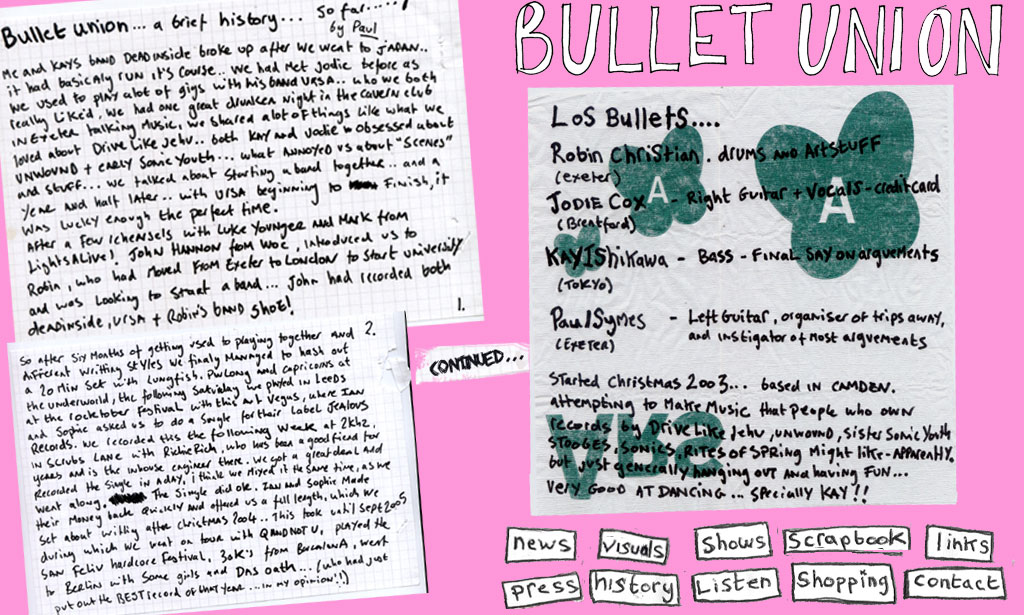 Bullet union... a brief history... so far.....,
by Paul
Me and Kays band DEADINSIDE broke up after we went to JAPAN..
it had basicaly run it's course.. we had met Jodie before as
we used to play alot of gigs with his band URSA.. who we both
really like'd, we had one great drunken night in the cavern club
in Exeter talking music, we shared alot of things like what we
loved about Drive Like Jehu.. both Kay and Jodie is obsessed about
UNWOUND + early Sonic Youth... what ANNOYED us about "SCENES"
and stuff... we talked about starting a band together.. and a
year and half later.. with URSA beginning to finish, it
was lucky enough the perfect time.
After a few rehensels with Luke Younger and Mark from
Lights Alive!, John Hannon from Woe, introduced us to
Robin, who had moved from Exeter to London to start university
and was looking to start a band... John had recorded both
deadinside, URSA + Robin's band SHOE!
1.
So after six months of getting used to playing together and 2.
different writting styles we finaly managed to hash out
a 20 min set with Lungfish. Pwlong and Capricorns at
the underworld, the following Saturday we played in Leeds
at the rocktober festival with this Art Vegas, where IAN
and Sophie asked us to do a single for their label JEALOUS
Records. we recorded this the following week at 2khz,
in Scrubs Lane with Richie Rich, who has been a good friend for
years and is the inhouse engineer there. We got a great deal and
recorded the single in a day, i think we mixed it the same time, as we
went along. The single did ok. Ian and Sophie made
their money back quickly and offered us a full length, which we
set about writing after christmas 2004.. This took until Sept 2005
during which we went on tour with QANDNOTU, played the
SAN FELIU hardcore festival, 30k's from Barcelona, went
to Berlin with Some girls and Dns oath... (who had just
put out the BEST record of that year ... in my opinion!!)
CONTINUED...
BULLET UNION
Los Bullets....
Robin Christian. drums and Artstuff
(exeter)
A
A
JODIE COX - Right Guitar + Vocals - creditcard
(Brentford)
KAY IShikawa - Bass - Final Say on arguements
(TOKYO)
Paul Symes - Left Guitar, organiser of trips away,
(EXETER) and instigator of most arguements
Started Christmas 2003... based in CAMDEN.
attempting to make music that people who own
records by Drive Like Jehu, UNWOUND, Sister Sonic Youth
STOOGES, SONICS, RITES OF SPRING might like - APPARENTLY.
but just generally hanging out and having FUN...
Very GOOD AT DANCING... specially KAY!!
news visuals Shows Scrapbook links
press history Listen Shopping contact